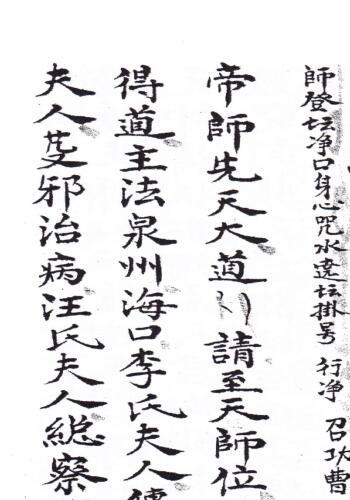 師登坛净口身心咒水遶坛掛号 行净 召功曹
帝師先天大道 請至天師位
得道主法泉州海口李氏夫人傳
夫人䕶邪治病汪氏夫人総察